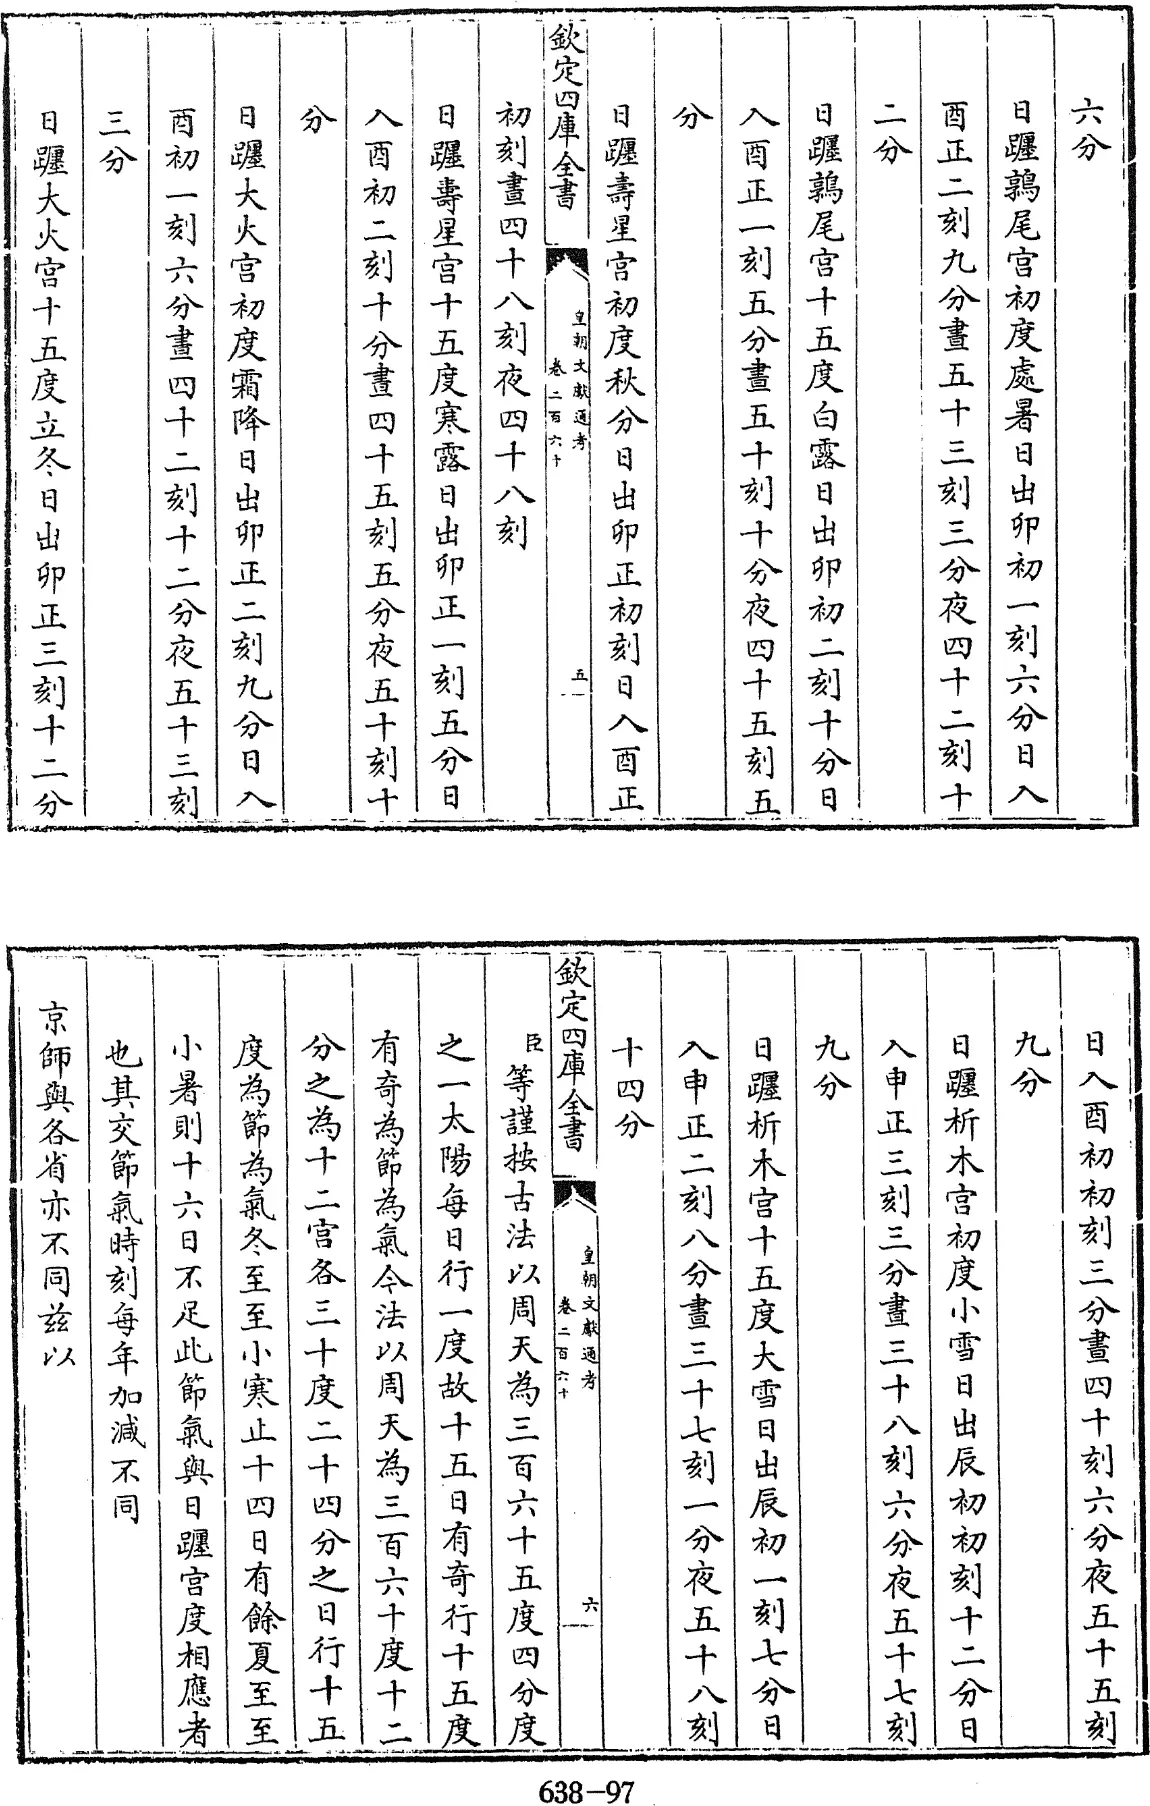 六分
日躔鶉尾宫初度處暑日出卯初一刻六分日入
酉正二刻九分晝五十三刻三分夜四十二刻十
二分
日躔鶉尾宫十五度白露日出卯初二刻十分日
入酉正一刻五分晝五十刻十分夜四十五刻五
分
日躔壽星宫初度秋分日出卯正初刻日入酉正
欽定四庫全書
皇朝文獻通考
卷二百六十
五
初刻晝四十八刻夜四十八刻
日躔壽星宫十五度寒露日出卯正一刻五分日
入酉初二刻十分晝四十五刻五分夜五十刻十
分
日躔大火宫初度霜降日出卯正二刻九分日入
酉初一刻六分晝四十二刻十二分夜五十三刻
三分
日躔大火宫十五度立冬日出卯正三刻十二分
日入酉初初刻三分晝四十刻六分夜五十五刻
九分
日躔析木宫初度小雪日出辰初初刻十二分日
入申正三刻三分晝三十八刻六分夜五十七刻
九分
日躔析木宫十五度大雪日出辰初一刻七分日
入申正二刻八分晝三十七刻一分夜五十八刻
十四分
欽定四庫全書
皇朝文獻通考
卷二百六十
六
臣等謹按古法以周天為三百六十五度四分度
之一太陽每日行一度故十五日有奇行十五度
有奇為節為氣今法以周天為三百六十度十二
分之為十二宫各三十度二十四分之日行十五
度為節為氣冬至至小寒止十四日有餘夏至至
小暑則十六日不足此節氣與日躔宫度相應者
也其交節氣時刻每年加減不同
京師與各省亦不同兹以
638-97